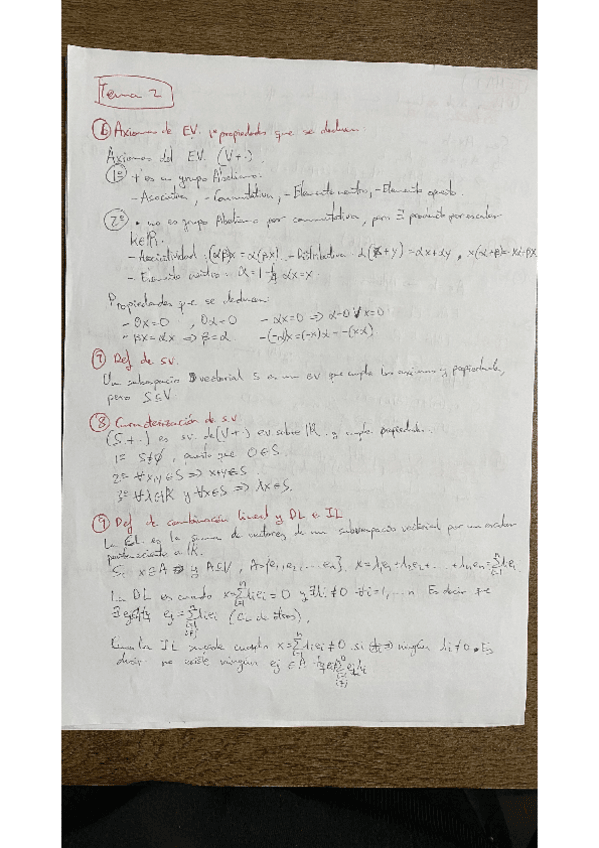 Tema 2
⑥ Axiomas de E.V. y propiedades que se deducen:
Axiomas del E.V. (V + ·).
1º + es un grupo Abeliano.
- Asociativa, - Conmutativa, - Elemento neutro, - Elemento opuesto.
2º · no es grupo Abeliano por conmutativa, pero ∃ producto por escalar
K∈ℝ.
- Asociatividad: (αβ)x = α(βx). - Distributiva = α(x+y) = αx+αy, x(α+β)=xα+βx
- Elemento neutro = αx=x.
Propiedades que se deducen:
- 0x=0 , 0α=0 - αx=0 ⇒ α=0 ∨ x=0
- βx=αx ⇒ β=α -(-α)x=(-x)α=-(xα)
⑦ Def de s.v.
Un subespacio vectorial S es un ev que cumple los axiomas y propiedades,
pero S⊆V
⑧ Caracterización de s.v.
(S + ·) es s.v. de (V + ·) ev sobre ℝ y cumple propiedades:
1º S≠∅, puesto que 0∈S.
2º ∀x,y∈S ⇒ x+y∈S
3º ∀λ∈ℝ y ∀x∈S ⇒ λx∈S.
⑨ Def de combinación lineal y DL e IL
La es la suma de vectores de un subespacio vectorial por un escalar
perteneciente a ℝ.
Si x∈A y A⊆V, A={e₁,e₂,...eₙ}, x=λ₁e₁+λ₂e₂+...+λₙeₙ=∑λᵢeᵢ
Lin DL es cuando x=∑λᵢeᵢ=0 y ∃λᵢ≠0 ∀i=1,...n Es decir que
∃ eⱼ=∑λᵢeᵢ (CL de otros),
IL sucede cuando x=∑λᵢeᵢ≠0 si ⇒ ningún λᵢ≠0. Es
decir no existe ningún eⱼ∈A